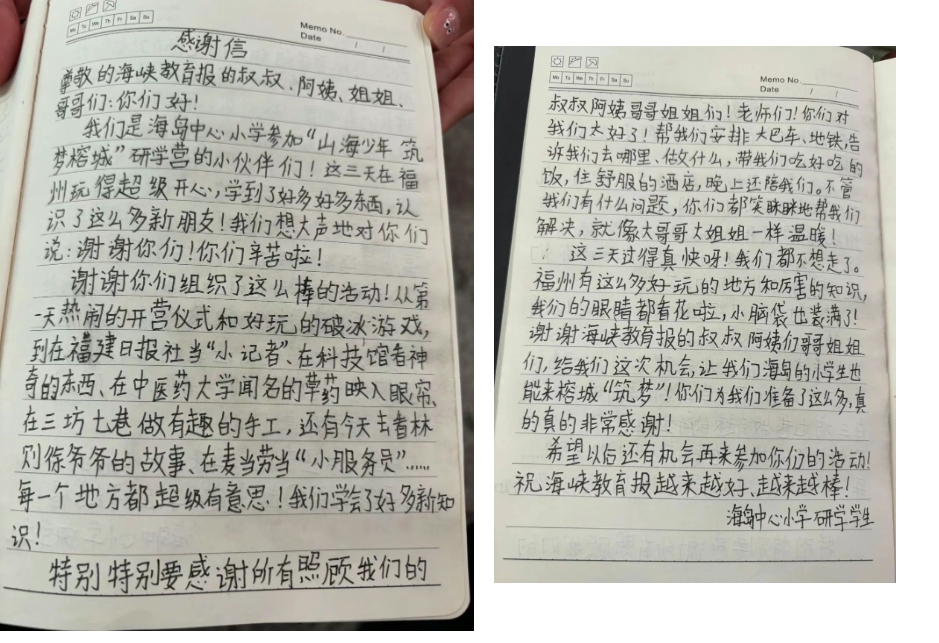 Mo Tu We Th Fr Sa Su
Memo No.
Date / /
感谢信
尊敬的海峡教育报的叔叔、阿姨、姐姐、
哥哥们:你们好!
我们是海岛中心小学参加“山海少年 筑
梦榕城”研学营的小伙伴们!这三天在福
州玩得超级开心,学到了好多好多东西,认
识了这么多新朋友!我们想大声地对你们
说:谢谢你们!你们辛苦啦!
谢谢你们组织了这么棒的活动!从第
一天热闹的开营仪式和好玩的破冰游戏,
到在福建日报社当“小记者”、在科技馆看神
奇的东西、在中医药大学闻名的草药映入眼帘、
在三坊七巷做有趣的手工,还有今天去看林
则徐爷爷的故事、在麦当劳当“小服务员”……
每一个地方都超级有意思!我们学会了好多新知
识!
特别特别要感谢所有照顾我们的
Mo Tu We Th Fr Sa Su
Memo No.
Date / /
叔叔阿姨哥哥姐姐们!老师们!你们对
我们太好了!帮我们安排大巴车、地铁,告
诉我们去哪里、做什么,带我们吃好吃的
饭,住舒服的酒店,晚上还陪我们。不管
我们有什么问题,你们都笑眯眯地帮我们
解决,就像大哥哥大姐姐一样温暖!
这三天过得真快呀!我们都不想走了。
福州有这么多好玩的地方和厉害的知识,
我们的眼睛都看花啦,小脑袋也装满了!
谢谢海峡教育报的叔叔阿姨们哥哥姐姐
们,给我们这次机会,让我们海岛的小学生也
能来榕城“筑梦”!你们为我们准备了这么多,真
的真的非常感谢!
希望以后还有机会再来参加你们的活动!
祝海峡教育报越来越好、越来越棒!
海岛中心小学研学学生